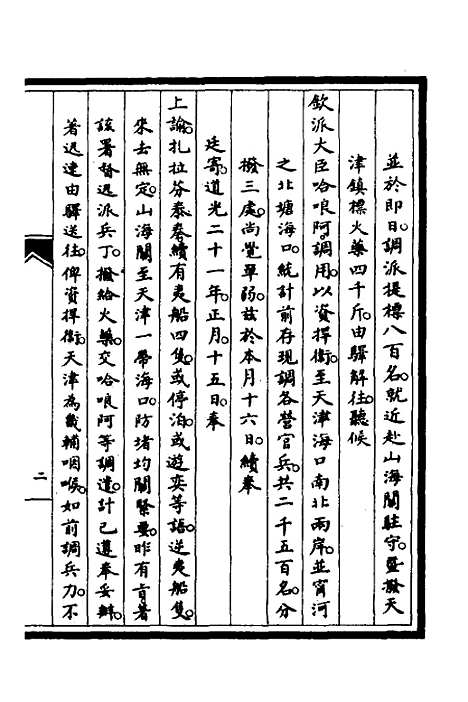 並於即日。調派提標八百名。就近赴山海關駐守。暨撥天
津鎮標火藥四千斤。由驛解往。聽候
欽派大臣哈哴阿。調用。以資捍衞。至天津海口南北兩岸。並甯河
之北塘海口。統計前存現調各營官兵。共二千五百名。分
撥三處。尚覺單弱。茲於本月十六日。續奉
廷寄。道光二十一年。正月。十五日。奉
上諭。扎拉芬泰奏續有夷船四隻。或停泊。或遊奕等語。逆夷船隻。
來去無定。山海關至天津一帶海口。防堵均關緊要。昨有旨著
該署督迅派兵丁。撥給火藥。交哈哴阿等調遣。計已遵奉妥辦。
著迅速由驛送往。俾資捍衞。天津為畿輔咽喉。如前調兵力。不
二